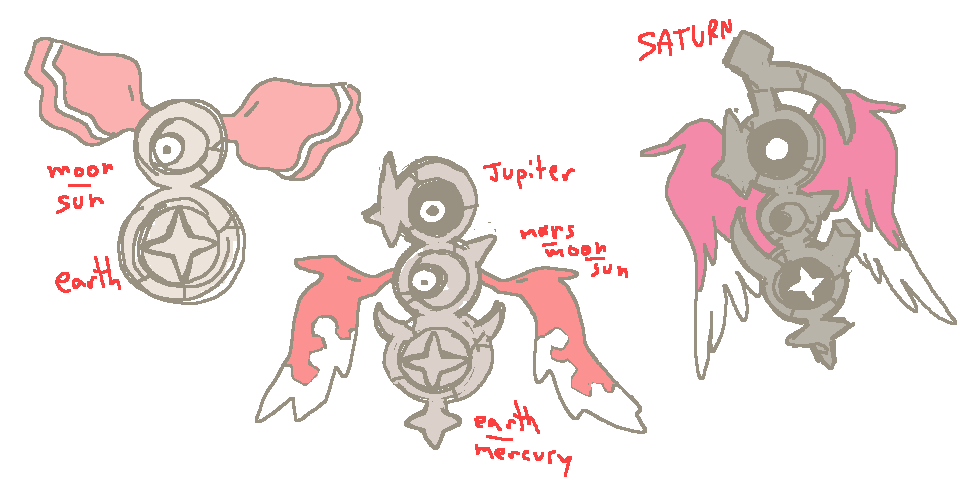 moon
sun
earth
Jupiter
mars
moon
sun
earth
mercury
SATURN